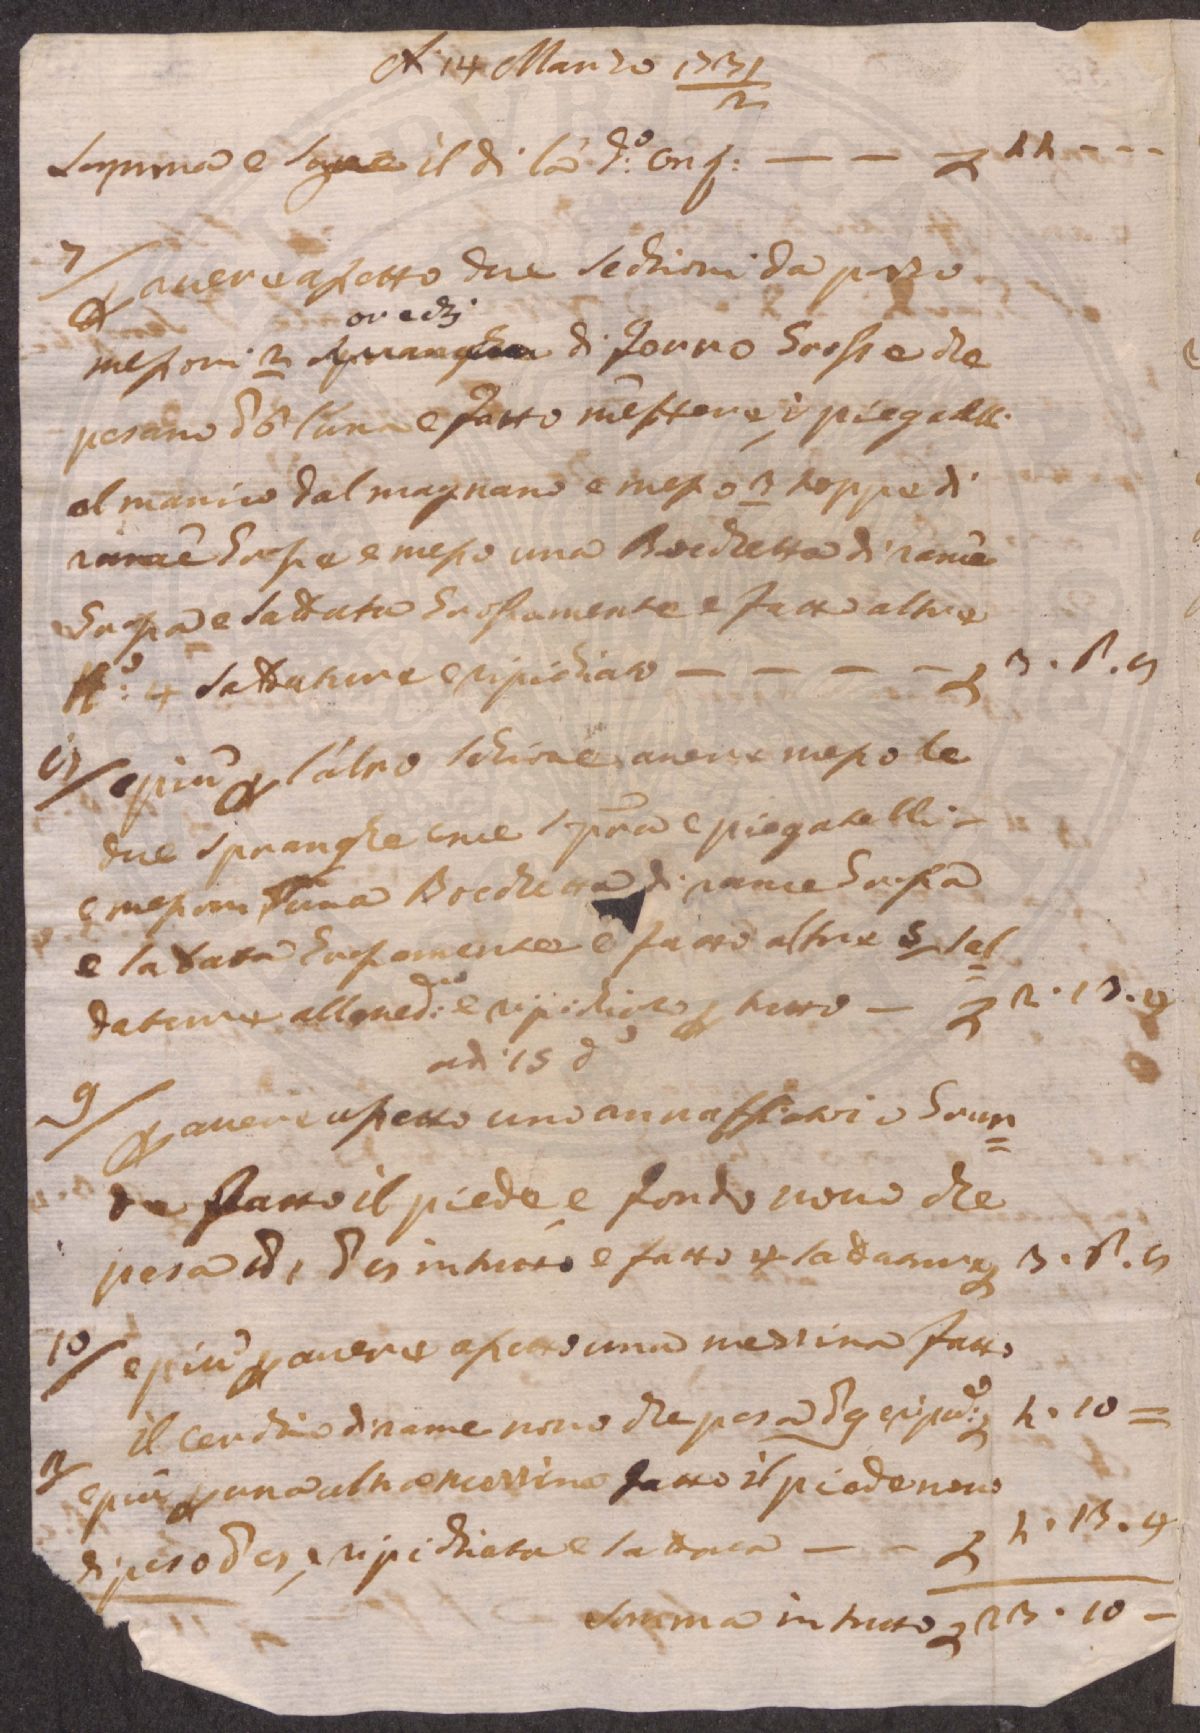 A 14 Marzo 1731/2
Somma e segue il di là d.º Conto: — — £ 11 - - -
7/ p avere asetto due sechioni da pozo
messoni 2 orechi di ferro grosse che
pesano ℔ 6 l'una e fatto mettere i piegatelli
al manico dal magnano e messo 3 toppe di
rame grosse e messo una Bochetta di rame
grossa e saldata grossamente e fatto altre
N.º: 4 saldature e ripichiato — — — — £ 3 . 6 . 8
8/ e più p l'altro sechione avere messo le
due spranghe come sopra e piegatelli -
e messoni una Bochetta di rame grossa
e saldata grossamente e fatto altre 5 sal=
dature al med.º: e ripichiato p tutto — £ 2 . 13 . 4
adi 15 d.º
9/ p avere asetto uno annaffiatoio Gran=
de fatto il piede e fondo novo che
pesa ℔ 1 ₰ 8 in tutto e fatto 4 saldature £ 3 . 6 . 8
10/ e più p avere asetto una mezzina fatto
il cerchio di rame novo che pesa ₰ 9 e ripi.º: £ 1 . 10 =
e più p una altra mezzina fatto il piede novo
di peso ₰ 8, ripichiata e saldata — — £ 1 . 13 . 4
Somma in tutto £ 23 . 10 —